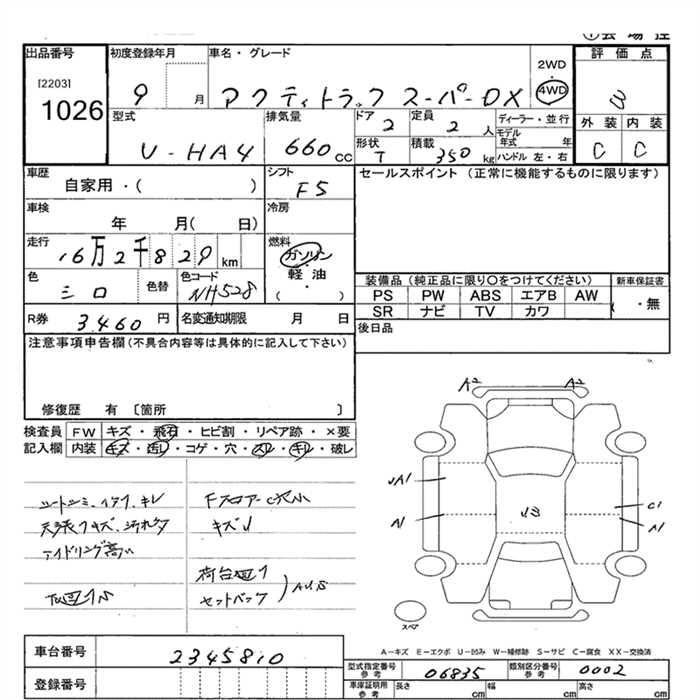 出品番号
[2203]
1026
初度登録年月
9 月
車名・グレード
アクティトラック スーパーDX
2WD
4WD
評価点
3
外装 内装
C C
型式
U-HA4
排気量
660 cc
ドア
2
定員
2 人
ディーラー・並行
モデル年式 年
形状
T
積載
350 kg
ハンドル 左・右
車歴
自家用・( )
シフト
F5
セールスポイント (正常に機能するものに限ります)
車検
年 月( 日)
冷房
走行
16万2千829 km
燃料
ガソリン
軽油
( )
色
シロ
色替
色コード
NH528
装備品 (純正品に限り○をつけてください)
新車保証書
PS PW ABS エアB AW
SR ナビ TV カワ
・無
R券
3,460 円
名変通知期限 月 日
後日品
注意事項申告欄(不具合内容等は具体的に記入して下さい)
修復歴 有 〔箇所 〕
検査員 FW キズ・飛石・ヒビ割・リペア跡・×要
記入欄 内装 キズ・汚レ・コゲ・穴・スレ・キレ・破レ
アイドリング高い
キズ
セットバック
A2 A2
A1
C1
A1
スペア
A-キズ E-エクボ U-凹み W-補修跡 S-サビ C-腐食 XX-交換済
車台番号
2345810
登録番号
型式指定番号
参考
06835
類別区分番号
参考
0002
車庫証明用
参考
長さ cm 幅 cm 高さ cm